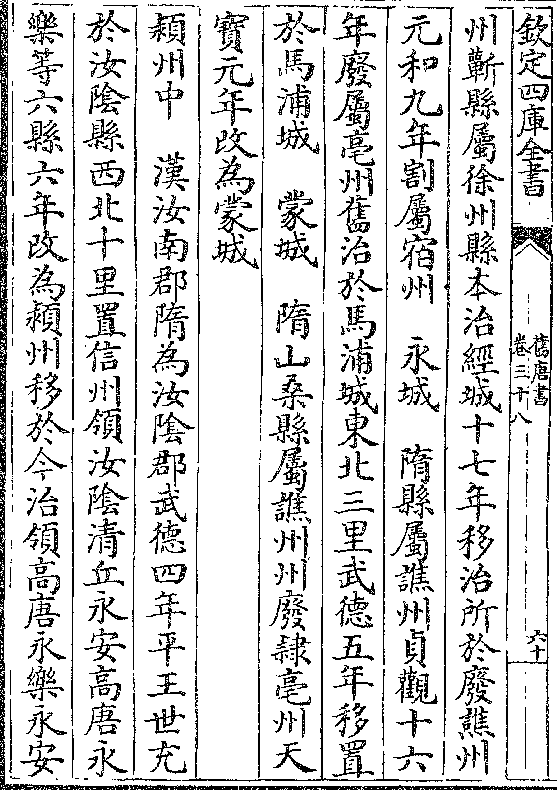 欽定四庫全書
舊唐書
卷三十八
六十
州蘄縣屬徐州縣本治經城十七年移治所於廢譙州
元和九年割屬宿州　永城　隋縣屬譙州貞觀十六
年廢屬亳州舊治於馬浦城東北三里武德五年移置
於馬浦城　蒙城　隋山桑縣屬譙州州廢隸亳州天
寶元年改為蒙城
潁州中　漢汝南郡隋為汝陰郡武德四年平王世充
於汝陰縣西北十里置信州領汝陰清丘永安高唐永
樂等六縣六年改為潁州移於今治領高唐永樂永安